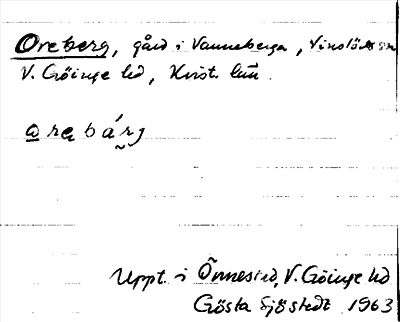 Oreberg, gård i Vanneberga, Vinslövs sn
V. Göinge hd, Krist. län.
o r e b á r j
Uppt. i Önnestad, V. Göinge hd
Gösta Sjöstedt 1963